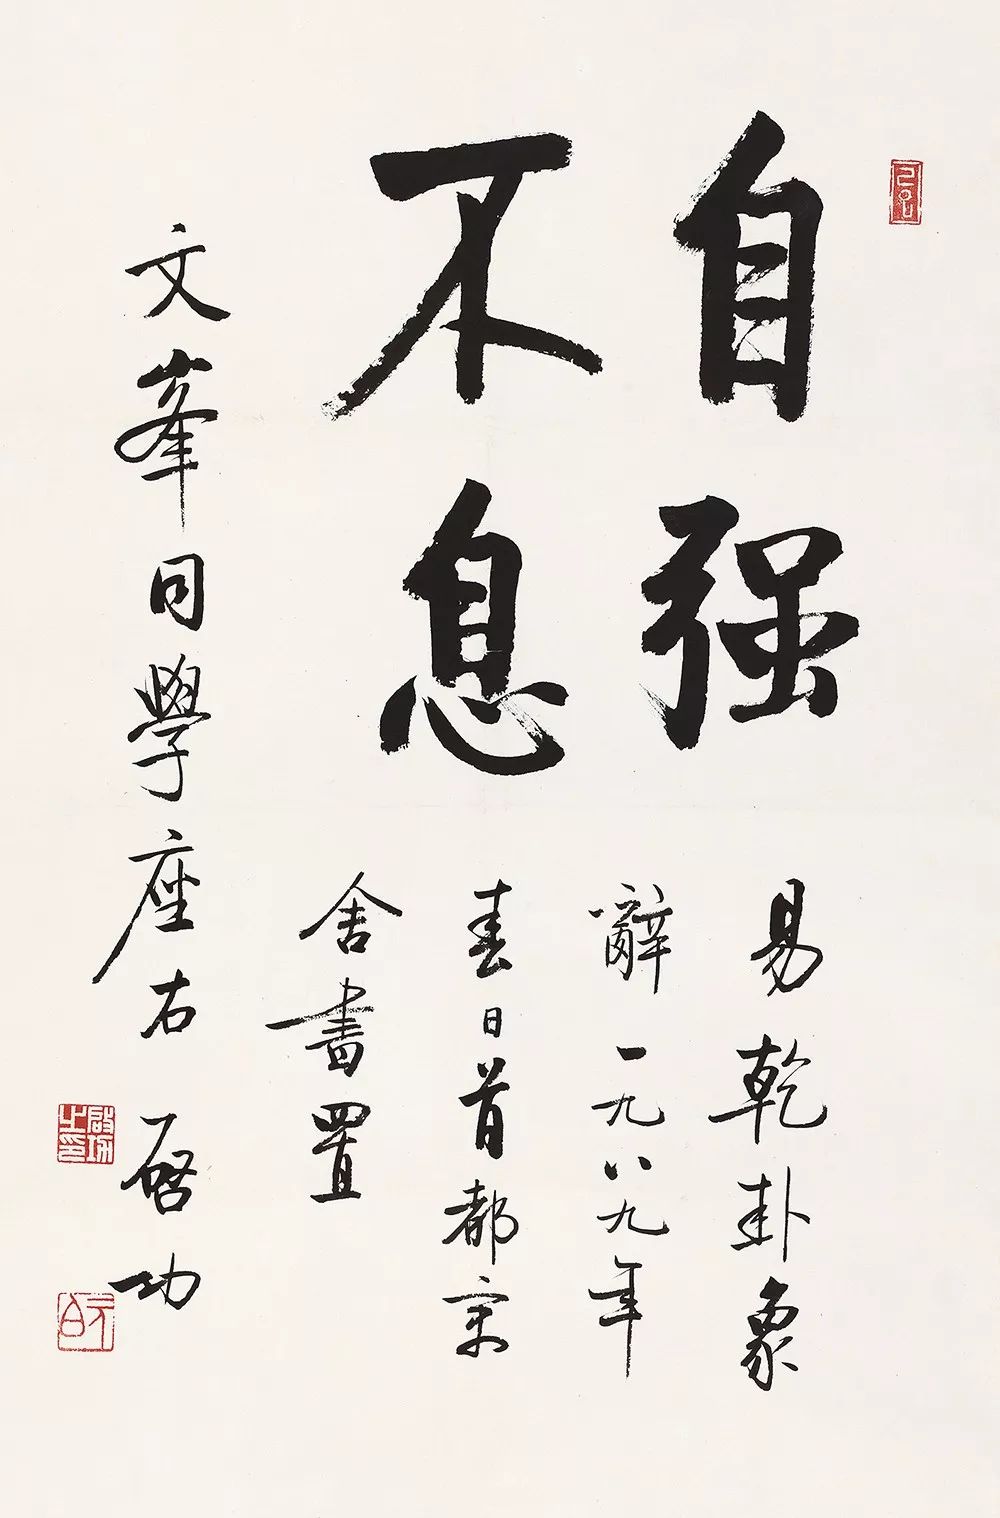 自强
不息
易乾卦象
辭一九八九年
春日首都寓
舍書置
文峯同學座右 啓功
啟功之印
元白